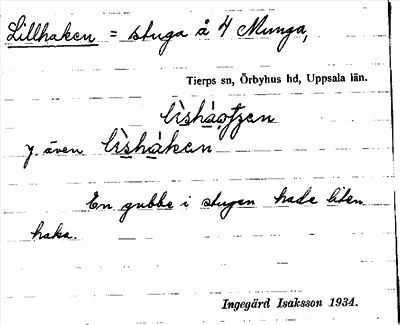 Lillhaken = stuga å 4 Munga,
Tierps sn, Örbyhus hd, Uppsala län.
y. även
En gubbe i stugan hade liten
haka.
Ingegärd Isaksson 1934.